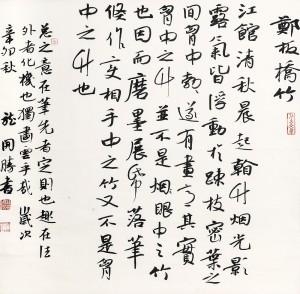 鄭板橋竹
江館清秋晨起看竹烟光影
露氣皆浮動於疎枝密葉之
間胷中勃遂有畫意其實
胷中之竹並不是眼中之竹
也因而磨墨展紙落筆
倏作变相手中之竹又不是胷
中之竹也
总之意在筆先者定則也趣在法
外者化機也獨畫雲乎哉歲次
辛卯秋 龍開勝書